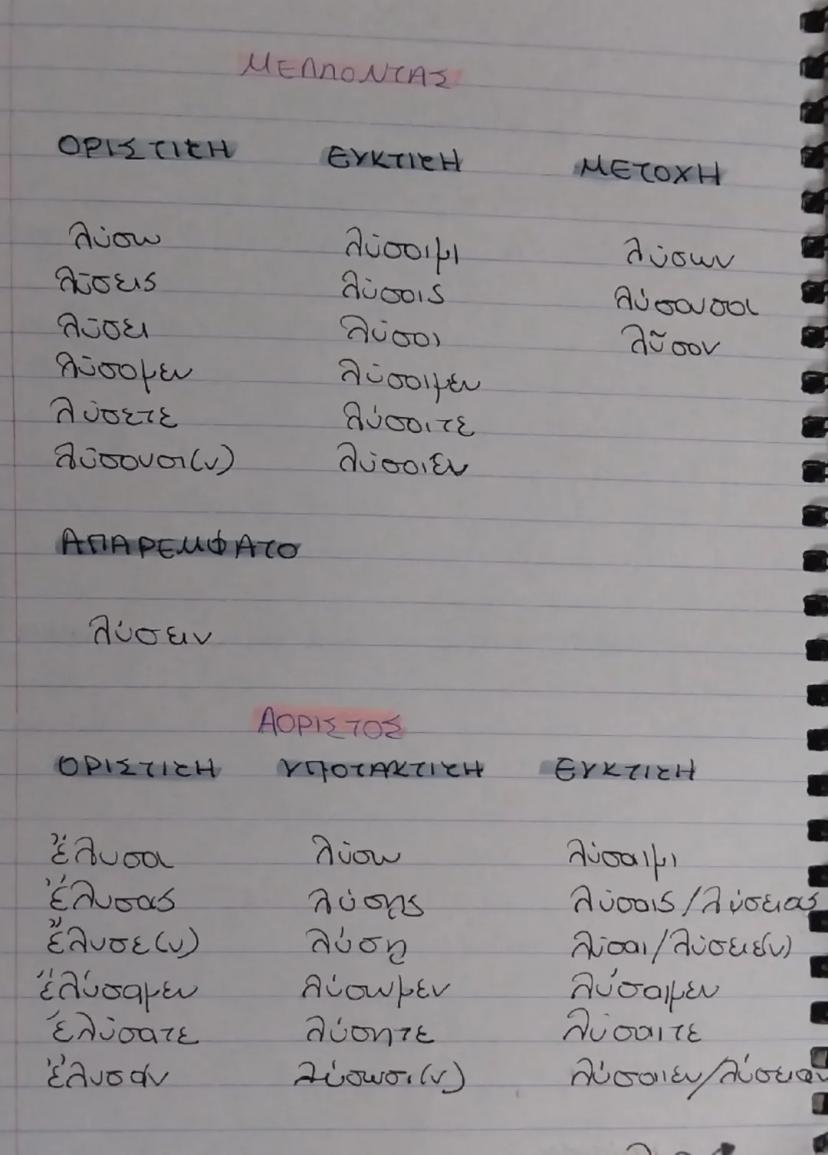 ΜΕΛΛΟΝΤΑΣ
ΟΡΙΣΤΙΚΗ ΕΥΚΤΙΚΗ ΜΕΤΟΧΗ
λύσω λύσοιμι λύσων
λύσεις λύσοις λύσουσα
λύσει λύσοι λῦσον
λύσομεν λύσοιμεν
λύσετε λύσοιτε
λύσουσι(ν) λύσοιεν
ΑΠΑΡΕΜΦΑΤΟ
λύσειν
ΑΟΡΙΣΤΟΣ
ΟΡΙΣΤΙΚΗ ΥΠΟΤΑΚΤΙΚΗ ΕΥΚΤΙΚΗ
ἔλυσα λύσω λύσαιμι
ἔλυσας λύσῃς λύσαις/λύσειας
ἔλυσε(ν) λύσῃ λύσαι/λύσειε(ν)
ἐλύσαμεν λύσωμεν λύσαιμεν
ἐλύσατε λύσητε λύσαιτε
ἔλυσαν λύσωσι(ν) λύσαιεν/λύσειαν